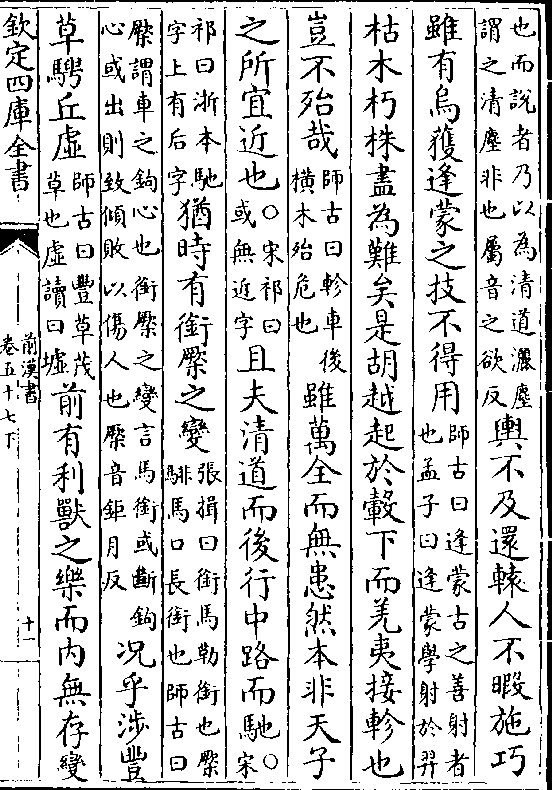 也而說者乃以為清道灑塵
謂之清塵非也屬音之欲反
輿不及還轅人不暇施巧
雖有烏獲逢蒙之技不得用
師古曰逢蒙古之善射者
也孟子曰逢蒙學射於羿
枯木朽株盡為難矣是胡越起於轂下而羌夷接軫也
豈不殆哉
師古曰軫車後
橫木殆危也
雖萬全而無患然本非天子
之所宜近也
〇宋祁曰
或無近字
且夫清道而後行中路而馳
〇
宋
祁曰浙本馳
字上有后字
猶時有銜橜之變
張揖曰銜馬勒銜也橜
騑馬口長銜也師古曰
橜謂車之鉤心也銜橜之變言馬銜或斷鉤
心或出則致傾敗以傷人也橜音鉅月反
況乎涉豐
草騁丘虛
師古曰豐草茂
草也虛讀曰墟
前有利獸之樂而內無存變
欽定四庫全書
前漢書
卷五十七下
十一